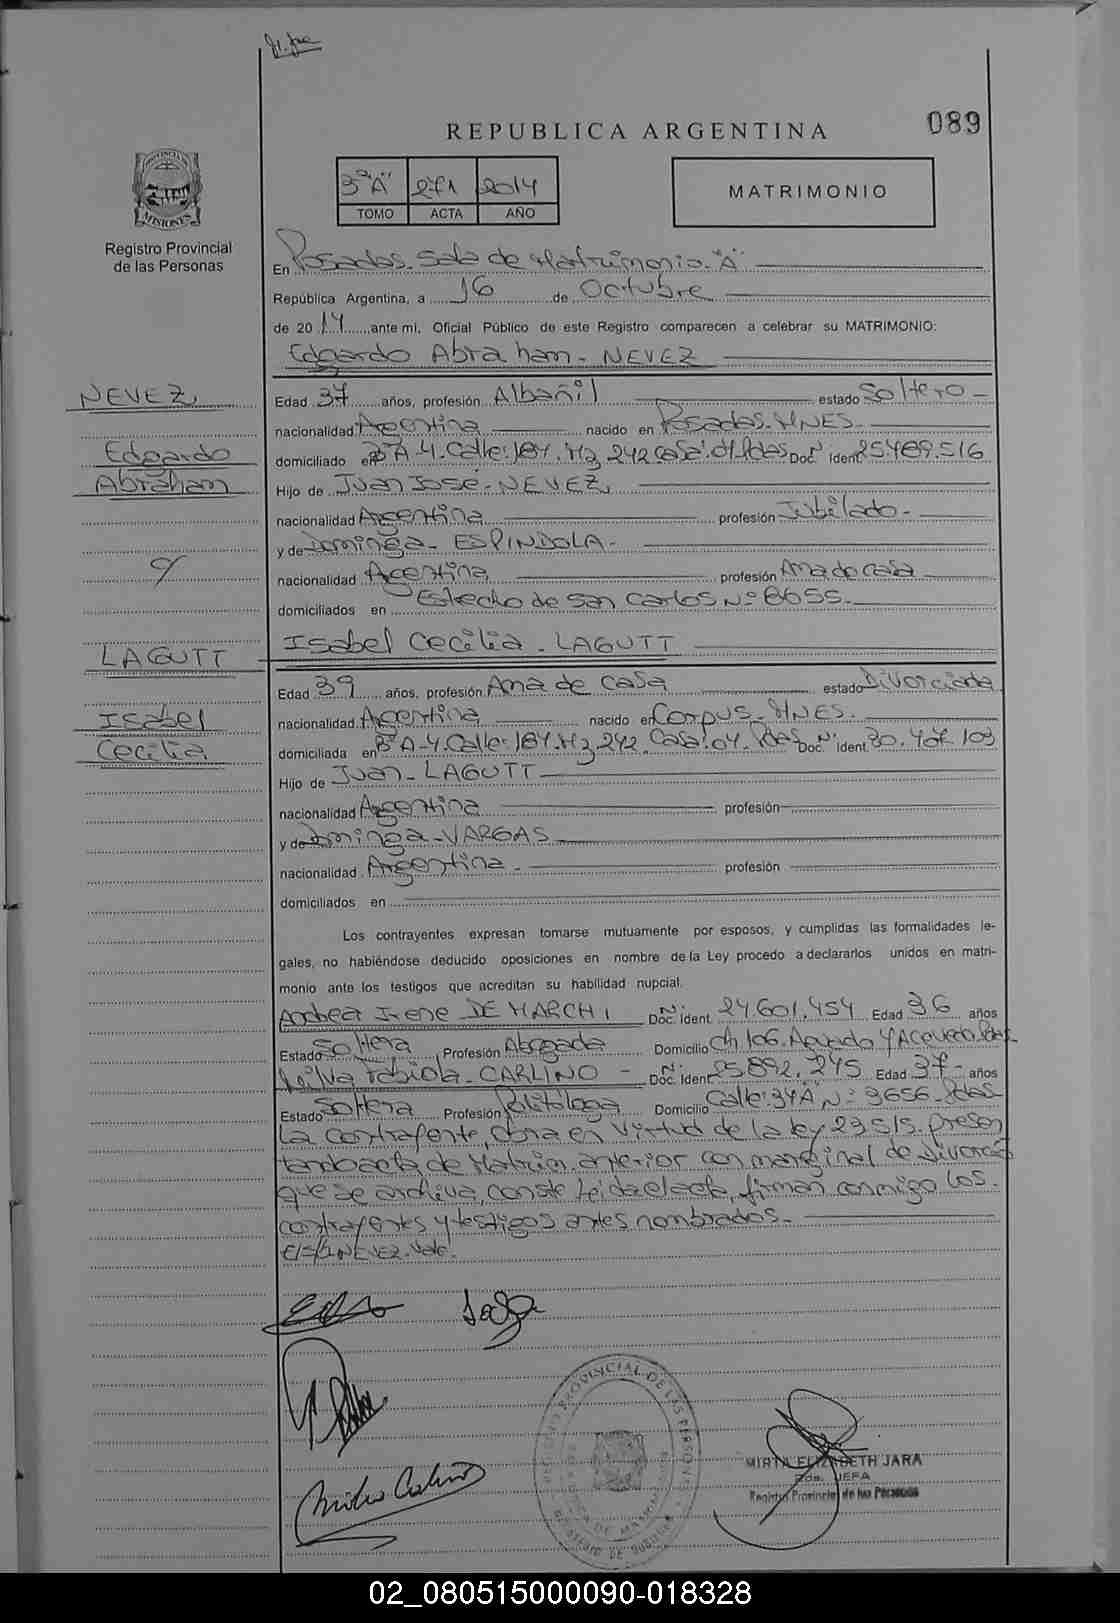 089
REPUBLICA ARGENTINA
3º"A" 271 2014
TOMO ACTA AÑO
MATRIMONIO
PROVINCIA DE MISIONES
Registro Provincial
de las Personas
En Posadas. Sala de Matrimonio. "A"
República Argentina, a 16 de Octubre
de 2014 ante mi, Oficial Público de este Registro comparecen a celebrar su MATRIMONIO:
Edgardo Abraham - NEVEZ
NEVEZ,
Edgardo
Abraham
Edad 37 años, profesión Albañil estado Soltero -
nacionalidad Argentina nacido en Posadas. MNES.
domiciliado en Bº A-4. Calle: 184. Mz 242 Casa: 04. Pdas Doc. Nº Ident 25.489.516
Hijo de Juan José - NEVEZ,
nacionalidad Argentina profesión Jubilado -
y de Dominga - ESPINDOLA -
nacionalidad Argentina profesión Ama de casa
domiciliados en Estecho de San Carlos Nº 6655.
c/
LAGUTT
Isabel
Cecilia
Isabel Cecilia - LAGUTT
Edad 39 años, profesión Ama de casa estado Divorciada
nacionalidad Argentina nacido en Corpus - MNES.
domiciliada en Bº A-4. Calle: 184. Mz 242. Casa: 04. Pdas Doc. Nº Ident 30.407.103
Hijo de Juan - LAGUTT
nacionalidad Argentina profesión
y de Dominga - VARGAS
nacionalidad Argentina - profesión
domiciliados en
Los contrayentes expresan tomarse mutuamente por esposos, y cumplidas las formalidades le-
gales, no habiéndose deducido oposiciones en nombre de la Ley procedo a declararlos unidos en matri-
monio ante los testigos que acreditan su habilidad nupcial.
Andrea Irene DE MARCHI Doc. Nº Ident 24.601.454 Edad 36 años
Estado Soltera Profesión Abogada Domicilio Ch 106. Y Acevedo. Pdas
Fabiola - CARLINO - Doc. Nº Ident 25.892.245 Edad 37 - años
Estado Soltera Profesión Politóloga Domicilio Calle: 34 A Nº 3656 - Pdas
La contrayente, obra en virtud de la ley 23515. presen
tando acta de Matrim. anterior con marginal de Divorcio
que se archiva, conste leida el acta, firman conmigo los.
contrayentes y testigos antes nombrados.-
E/S/L NEVEZ. Vale.
REGISTRO PROVINCIAL DE LAS PERSONAS
MIRTA ELIZABETH JARA
JEFA
Registro Provincial de las Personas
02_080515000090-018328